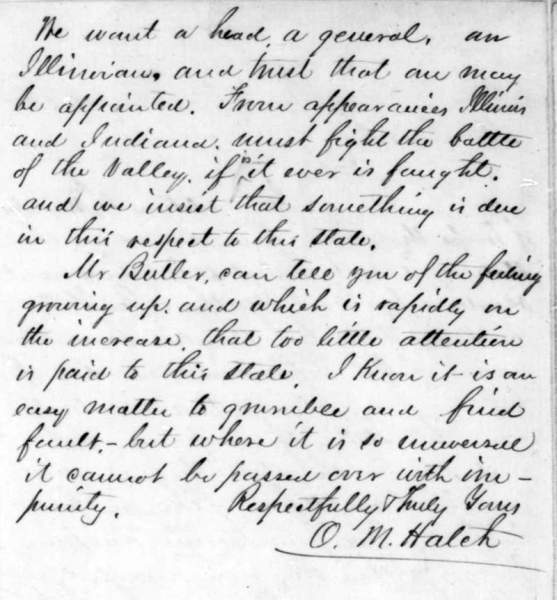 We want a head, a general, an
Illinoian, and trust that an may
be appointed. From appearances Illinois
and Indiana. must fight the battle
of the Valley, if it ever is faught.
and we insist that something is due
in this respect to this state.
Mr Butler, can tell you of the feeling
growing up. and which is rapidly on
the increase, that too little attention
is paid to this state, I Know it is an
easy matter to grumble and find
fault,- but where it is so universal
it cannot be passed over with im-
punity. Respectfully & Truly Yours
O. M. Hatch